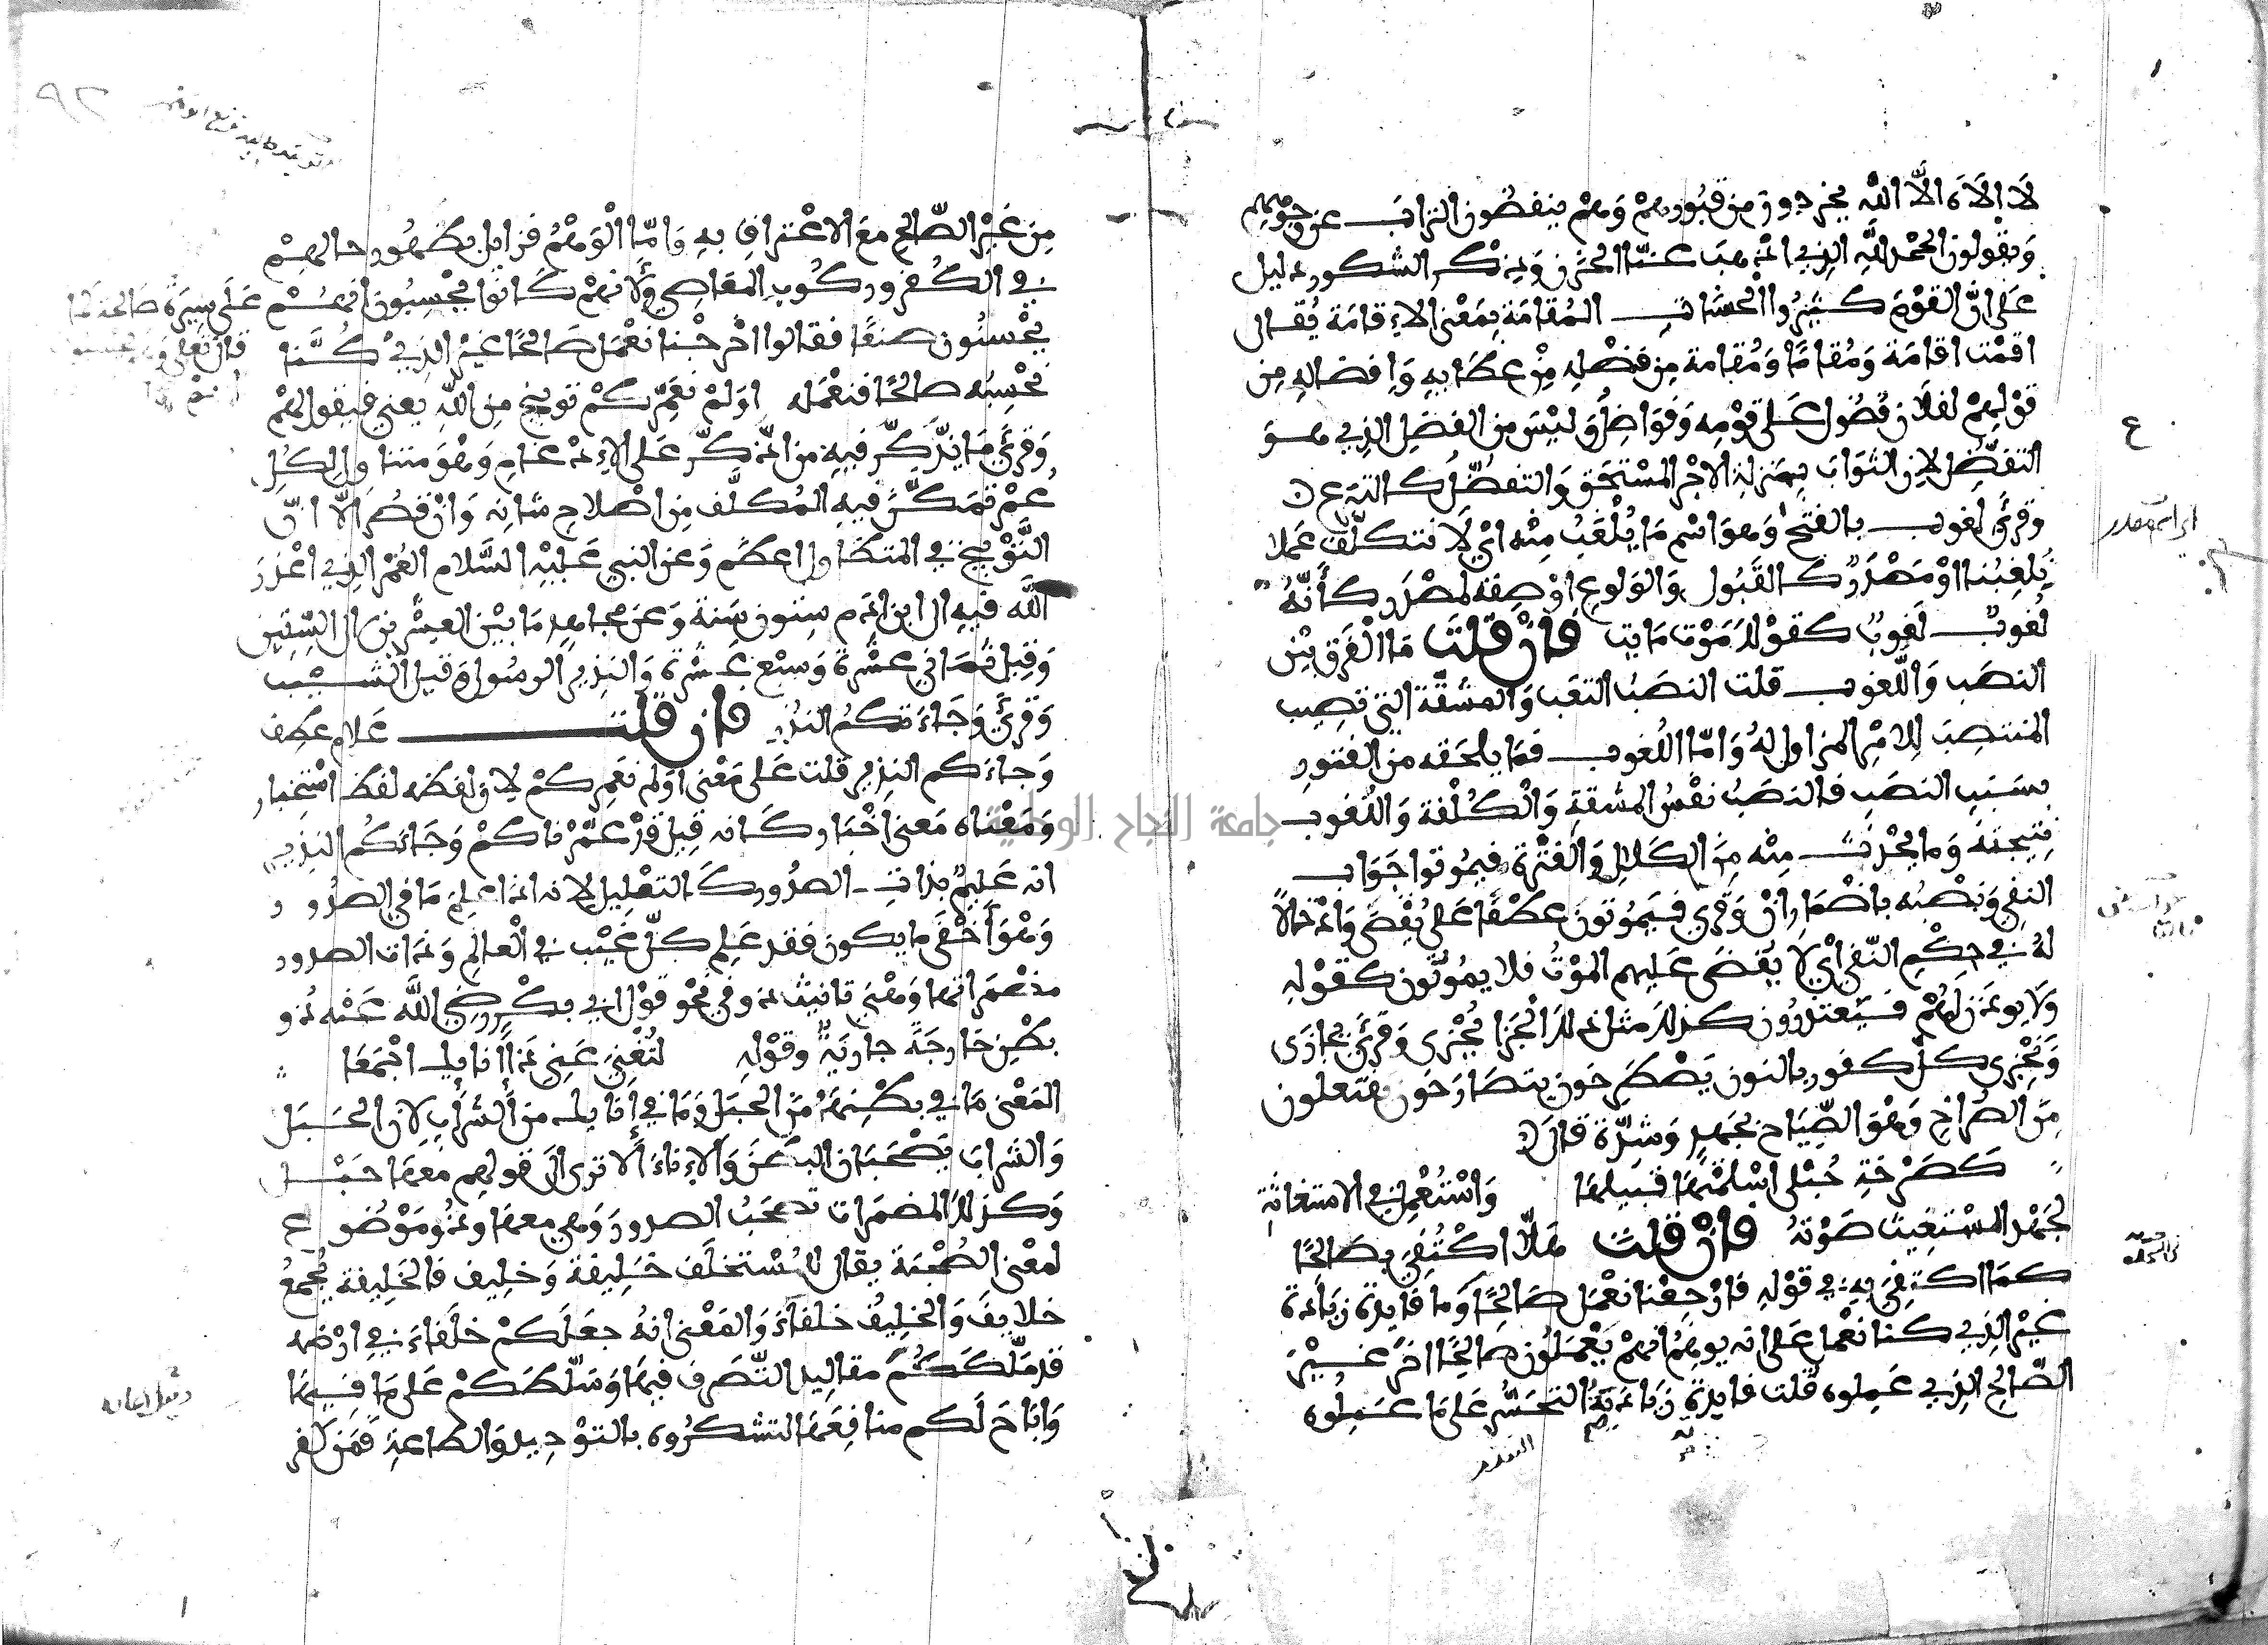 لا الاه الا الله يخرجون من قبورهم وهم ينفضون التراب عن وجوههم
ويقولون الحمد لله الذي اذهب عنا الحزن وذكر الشكور دليل
على ان القوم كثيروا الحسنات المقامة بمعنى الاقامة يقال
اقمت اقامة ومقاما ومقامة من فضله من عطايه وافضاله من
قولهم لفلان فضول على قومه وفواضل وليس من الفضل الذي هو
التفضل لان الثواب بمنزلة الاجر المستحق والتفضل كالتبرع
وقرئ لغوب بالفتح وهو اسم ما يلغب منه اي لا نتكلف عملا
يلغبنا او مصدر كالقبول والولوع او صفة لمصدر كأنه
لغوب لغوب كقولك موت مايت فان قلت ما الفرق بين
النصب واللغوب قلت النصب التعب والمشقة التي تصيب
المنتصب للامر المزاول له واما اللغوب فما يلحقه من الفتور
بسبب النصب فالنصب نفس المشقة والكلفة واللغوب
نتيجته وما يحدث منه من الكلال والفترة فيموتوا جواب
النفي ونصبه باضمار ان وقرئ فيموتون عطفا على يقضى وادخالا
له في حكم النفي اي لا يقضى عليهم الموت فلا يموتون كقوله
ولا يوذن لهم فيعتذرون كذلك مثل ذلك الجزا يجزى وقرئ يجازى
ونجزي كل كفور بالنون يصطرخون يتصارخون يفتعلون
من الصراخ وهو الصياح بجهد وشدة قال
كصرخة حبلى اسلمتها قبيلها واستعمل في الاستغاثة
لجهد المستغيث صوته فان قلت هلا اكتفي بصالحا
كما اكتفي به في قوله فارجعنا نعمل صالحا وما فايدة زيادة
غير الذي كنا نعمل على انه يوهم انهم يعملون صالحا اخر غير
الصالح الذي عملوه قلت فايدة زيادته التحسر على ما عملوه
من غير الصالح مع الاعتراف به واما الوهم فزايل بظهور حالهم
في الكفر وركوب المعاصي ولانهم كانوا يحسبون انهم على سيرة صالحة كما
يحسنون صنعا فقالوا اخرجنا نعمل صالحا غير الذي كنا
نحسبه صالحا فنعمله اولم نعمركم توبيخ من الله يعني فيقول لهم
وقرئ ما يذكر فيه من اذكر على الادغام وهو متناول لكل
عمر تمكن فيه المكلف من اصلاح شانه وان قصر الا ان
التوبيخ في المتطاول اعظم وعن النبي عليه السلام العمر الذي اعذر
الله فيه الى ابن ادم ستون سنة وعن مجاهد ما بين العشرين الى الستين
وقيل ثماني عشرة وسبع عشرة والنذير الرسول وقيل الشيب
وقرئ وجاءتكم النذر فان قلت علام عطف
وجاءكم النذير قلت على معنى اولم نعمركم لان لفظه لفظ استخبار
ومعناه معنى اخبار كانه قيل قد عمرناكم وجاءكم النذير
انه عليم بذات الصدور كالتعليل لانه اذا علم ما في الصدور
وهو اخفى ما يكون فقد علم كل غيب في العالم وذات الصدور
مضمراتها وهي تانيث ذو في نحو قول ابي بكر رضي الله عنه ذو
بطن خارجة جارية وقوله لتغني عني ذا انايك اجمعا
المعنى ما في بطنها من الحبل وما في انايك من الشراب لان الحبل
والشراب يصحبان البطن والاناء الا ترى الى قولهم معها حبل
وكذلك المضمرات تصحب الصدور وهي معها وذو موضوع
لمعنى الصحبة يقال للمستخلف خليفة وخليف فالخليفة يجمع
خلايف والخليف خلفاء والمعنى انه جعلكم خلفاء في ارضه
قد ملككم مقاليد التصرف فيها وسلطكم على ما فيها
واباح لكم منافعها لتشكروه بالتوحيد والطاعة فمن كفر
جامعة النجاح الوطنية